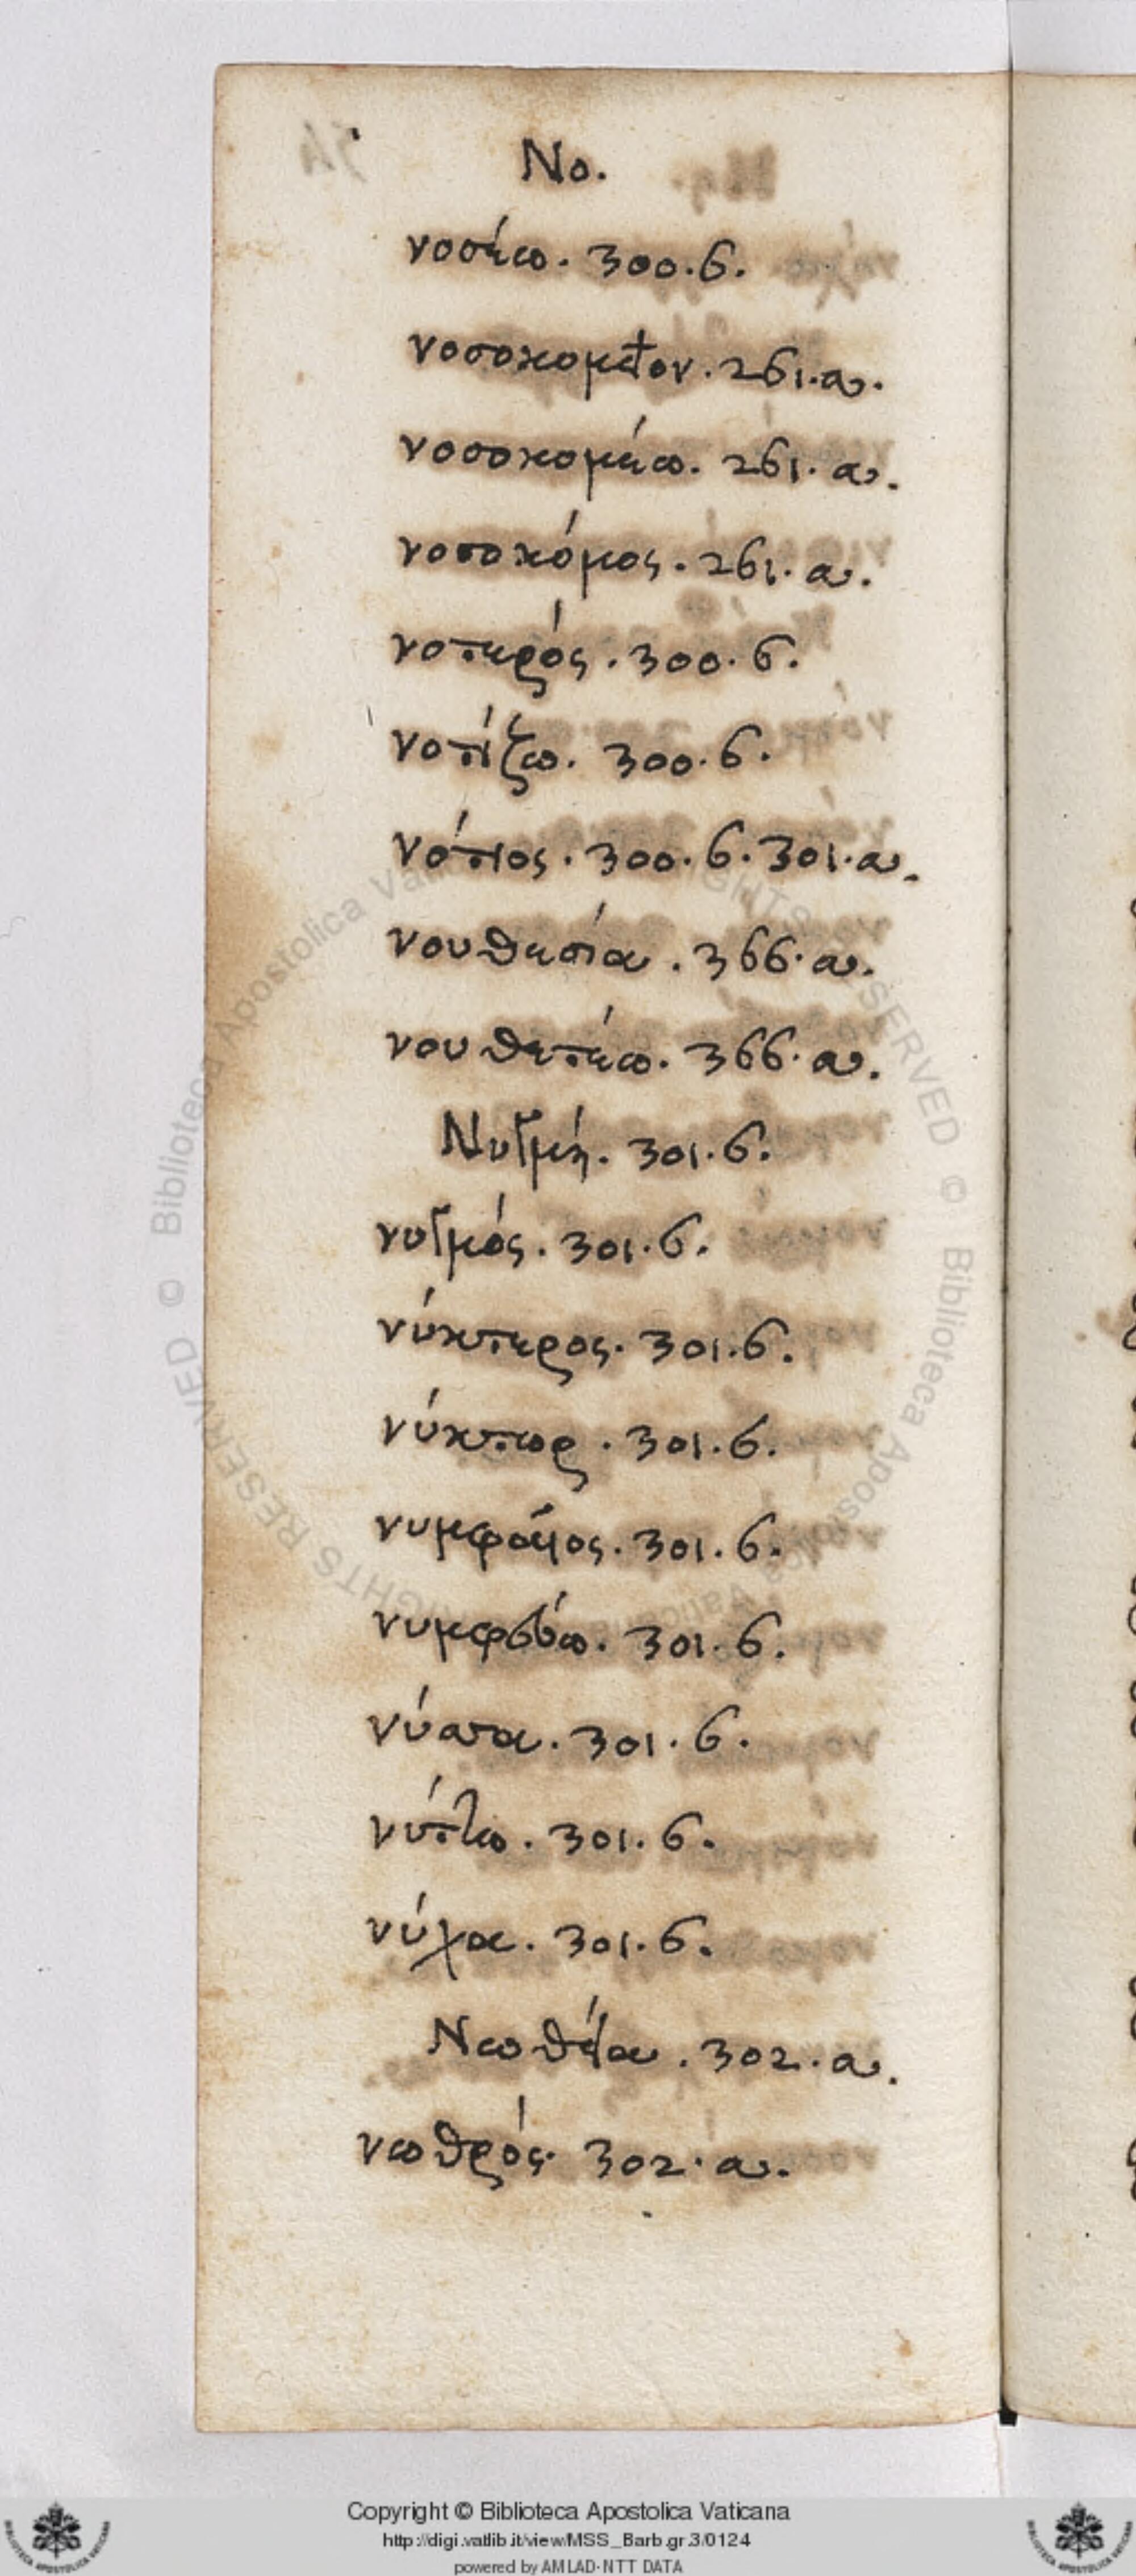 Νο.
νοσέω. 300.β.
νοσοκομεῖον. 261.α.
νοσοκομέω. 261.α.
νοσοκόμος. 261.α.
νοτερός. 300.β.
νοτίζω. 300.β.
νότιος. 300.β. 301.α.
νουθεσία. 366.α.
νουθετέω. 366.α.
Νυγμή. 301.β.
νυγμός. 301.β.
νύκτερος. 301.β.
νύκτωρ. 301.β.
νυμφαῖος. 301.β.
νυμφεύω. 301.β.
301.β.
νύττω. 301.β.
νύχα. 301.β.
Νωθεία. 302.α.
νωθρός. 302.α.
Copyright © Biblioteca Apostolica Vaticana
http://digi.vatlib.it/view/MSS_Barb.gr.3/0124
powered by AMLAD-NTT DATA